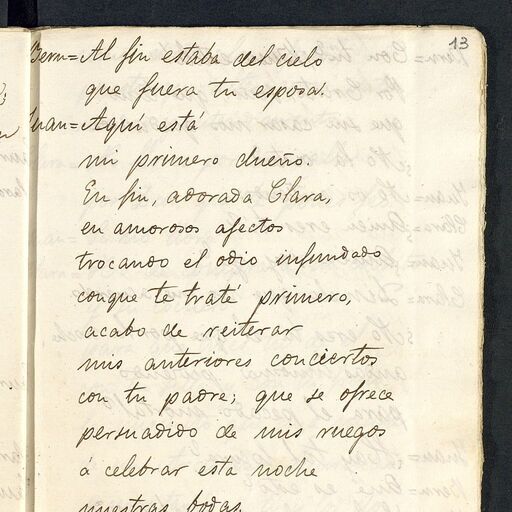 13
Bern=Al fin estaba del cielo
que fuera tu esposa.
Juan=Aqui está
mi primero dueño.
En fin, adorada Clara,
en amorosos afectos
trocando el odio infundado
conque te traté primero,
acabo de reiterar
mis anteriores conciertos
con tu padre; que se ofrece
persuadido de mis ruegos
á celebrar esta noche
nuestras bodas.